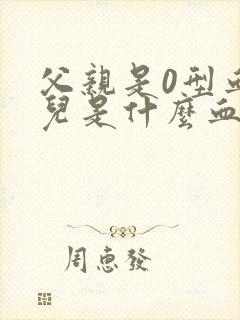 父親是0型血
兒是什麼血
周惠發